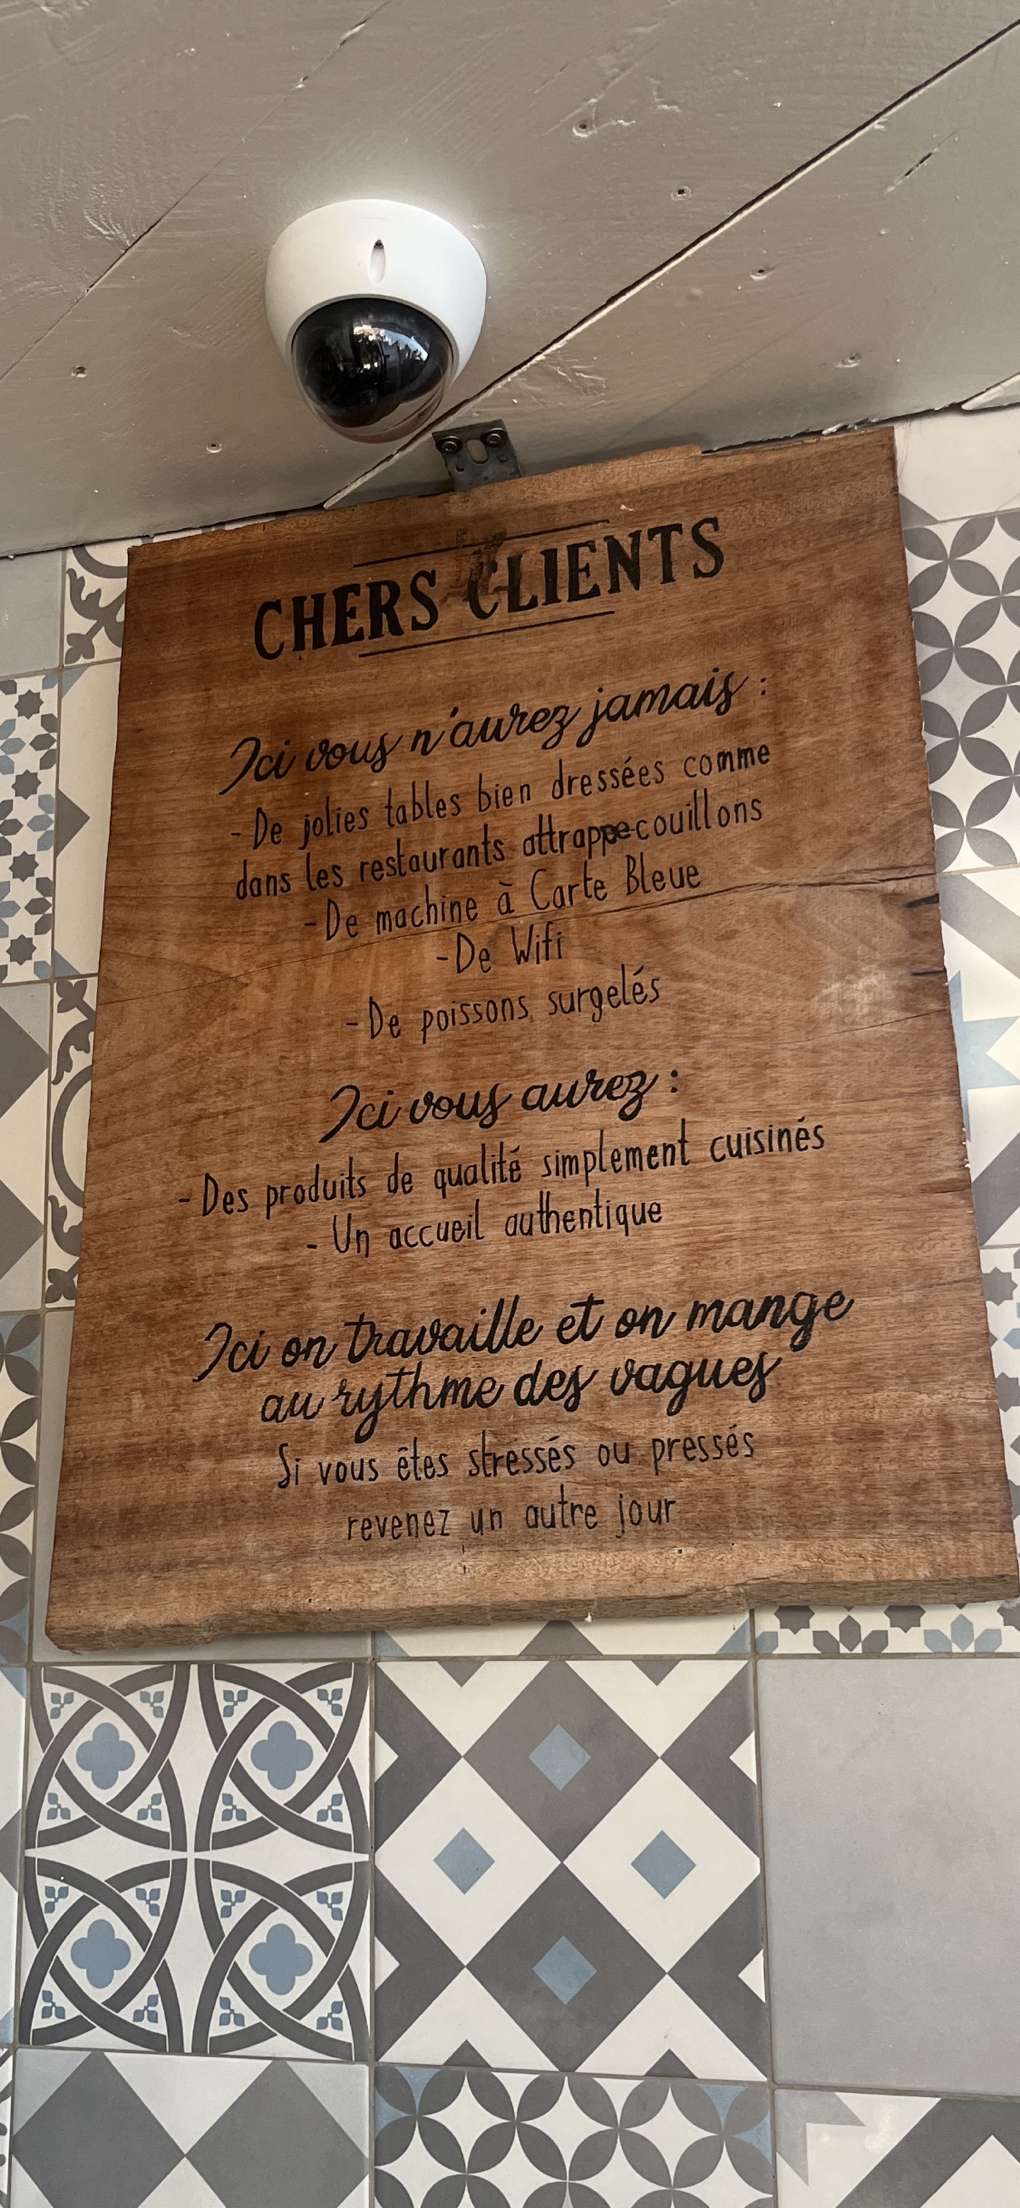 CHERS CLIENTS
Ici vous n'aurez jamais :
- De jolies tables bien dressées comme
dans les restaurants attrappe-couillons
- De machine à Carte Bleue
- De Wifi
- De poissons surgelés
Ici vous aurez :
- Des produits de qualité simplement cuisinés
- Un accueil authentique
Ici on travaille et on mange
au rythme des vagues
Si vous êtes stressés ou pressés
revenez un autre jour